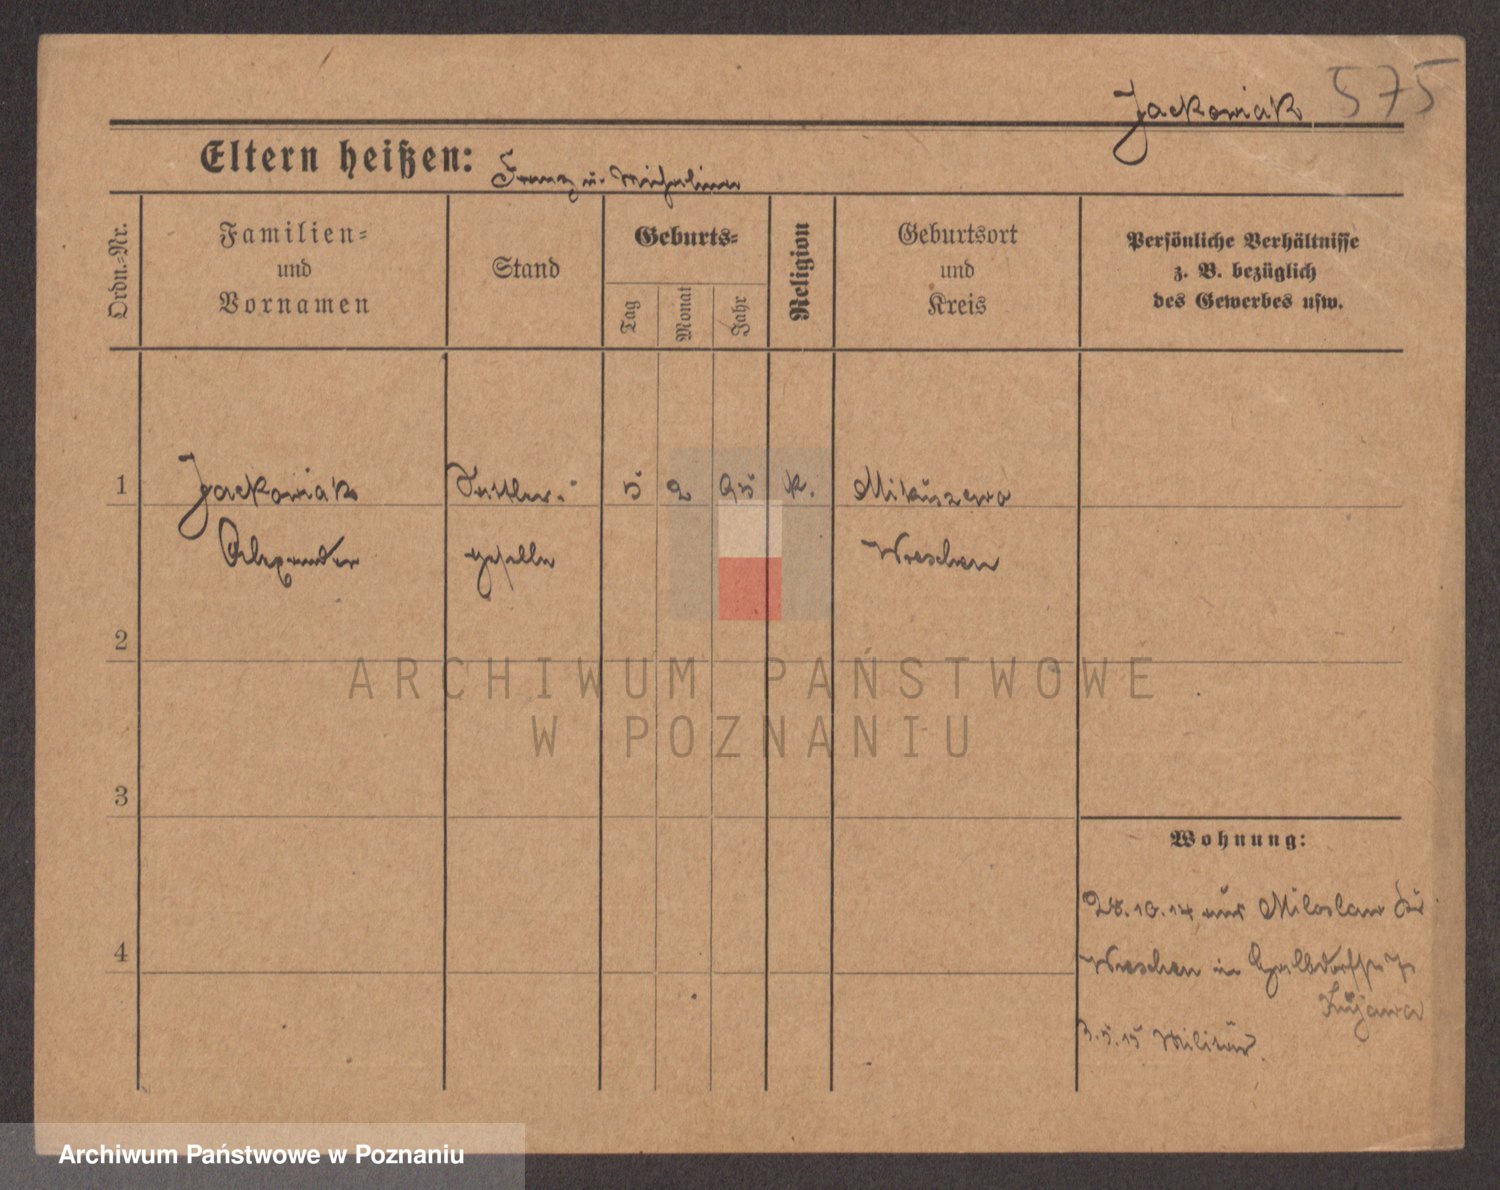 Jackowiak 575
Eltern heißen: Franz u. Michalina
Ordn.-Nr.
Familien-
und
Vornamen
Stand
Geburts-
Tag
Monat
Jahr
Religion
Geburtsort
und
Kreis
Persönliche Verhältnisse
z. B. bezüglich
des Gewerbes usw.
1 Jackowiak Sattler- 5 2 95 k. Mikuszewo
Alexander geselle Wreschen
2
ARCHIWUM PAŃSTWOWE
W POZNANIU
3
Wohnung:
28.10.14 aus Miloslaw Kr
4
Wreschen in 7
Kujawa
3.5.15 Militär.
Archiwum Państwowe w Poznaniu